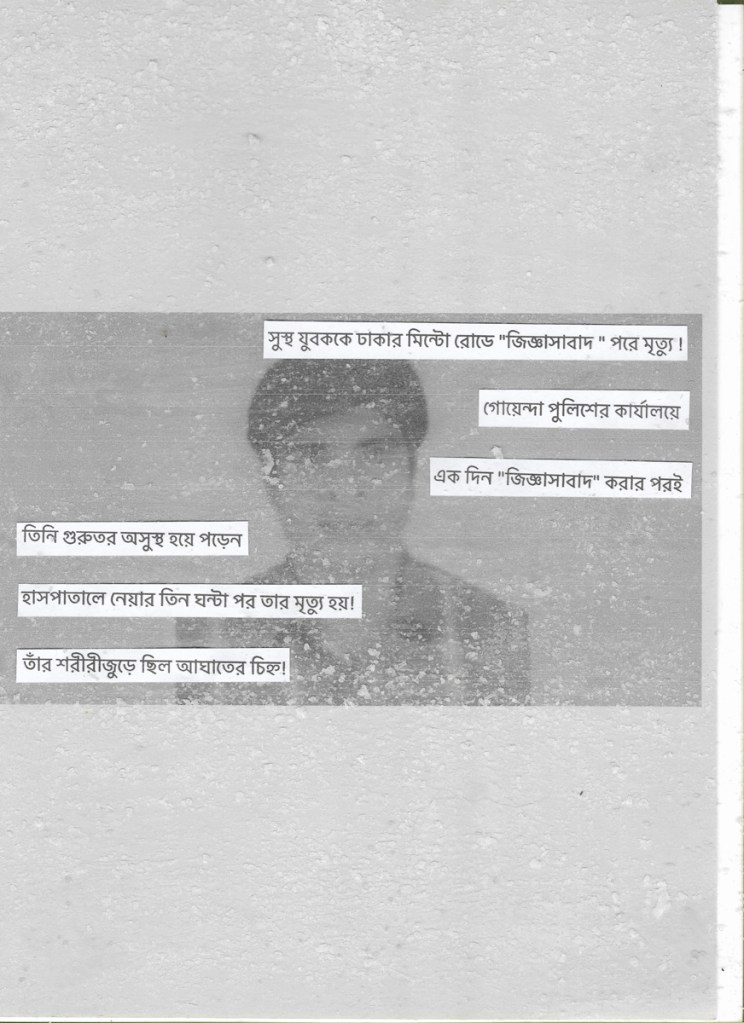 সুস্থ যুবককে ঢাকার মিন্টো রোডে "জিজ্ঞাসাবাদ " পরে মৃত্যু !
গোয়েন্দা পুলিশের কার্যালয়ে
এক দিন "জিজ্ঞাসাবাদ" করার পরই
তিনি গুরুতর অসুস্থ হয়ে পড়েন
হাসপাতালে নেয়ার তিন ঘন্টা পর তার মৃত্যু হয়!
তাঁর শরীরীজুড়ে ছিল আঘাতের চিহ্ন!